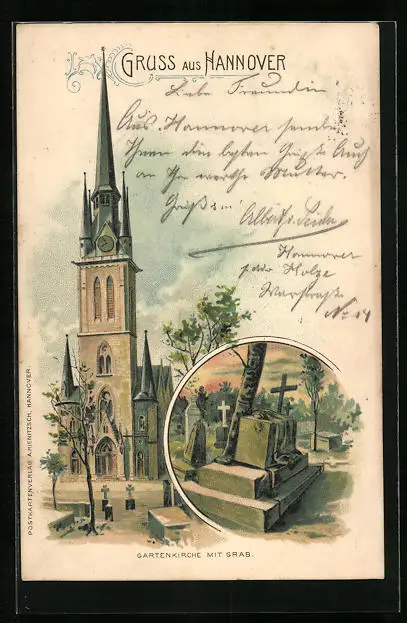 GRUSS AUS HANNOVER
Liebe Freundin!
Aus Hannover sende
Ihnen die besten Grüße Auch
an Ihre werthe Mutter.
Gruß
Albert
Hannover
Holze
No 14
POSTKARTENVERLAG A. HENITZSCH, HANNOVER.
GARTENKIRCHE MIT GRAB.